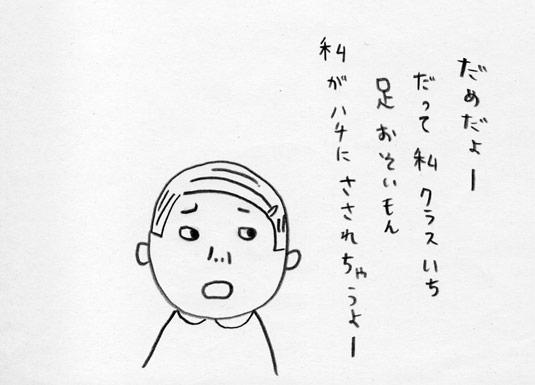 だめだよー
だって私クラスいち
足おそいもん
私がハチにさされちゃうよー